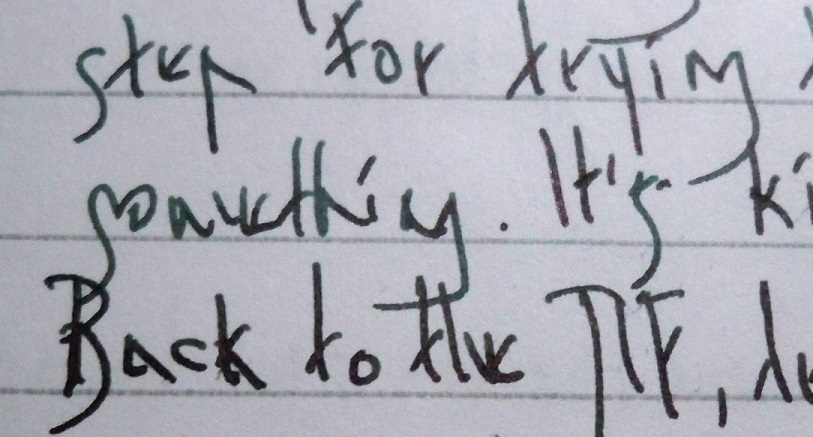 step for trying
something. It's ki
Back to the